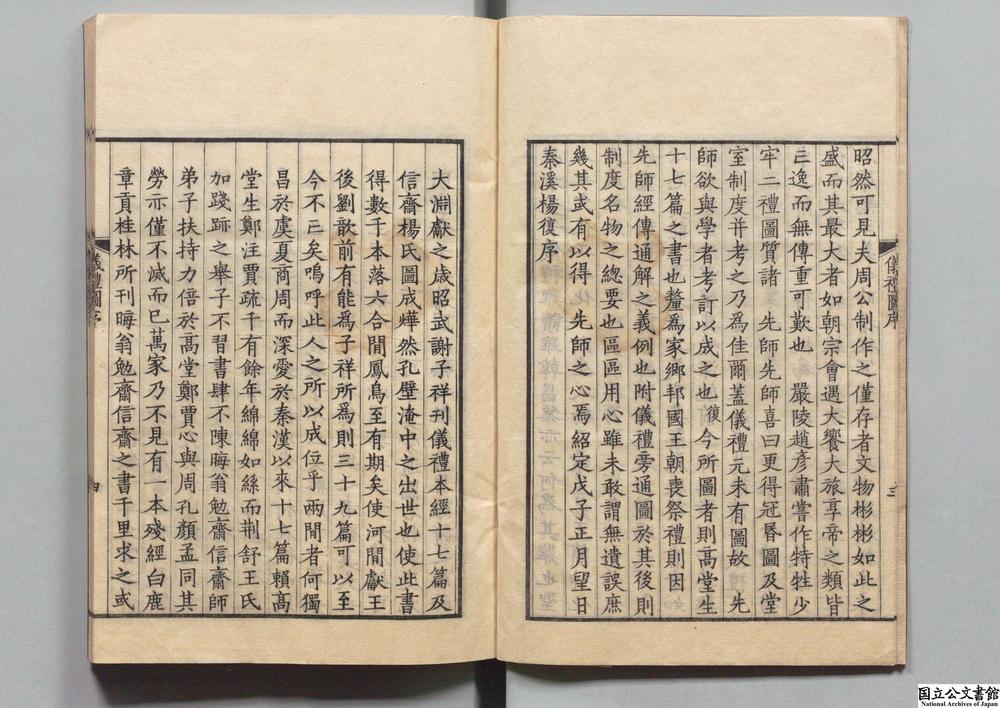 昭然可見夫周公制作之僅存者文物彬彬如此之
盛而其最大者如朝宗會遇大饗大旅享帝之類皆
三逸而無傳重可歎也嚴陵趙彥肅嘗作特牲少
牢二禮圖質諸先師先師喜曰更得冠昏圖及堂
室制度并考之乃為佳爾蓋儀禮元未有圖故先
師欲與學者考訂以成之也復今所圖者則高堂生
十七篇之書也釐為家鄉邦國王朝喪祭禮則因
先師經傳通解之義例也附儀禮旁通圖於其後則
制度名物之總要也區區用心雖未敢謂無遺誤庶
幾其或有以得先師之心焉紹定戊子正月望日
秦溪楊復序
儀禮圖序
三
大淵獻之歲昭武謝子祥刊儀禮本經十七篇及
信齋楊氏圖成燁然孔壁淹中之出世也使此書
得數千本落六合間鳳鳥至有期矣使河間獻王
後劉歆前有能為子祥所為則三十九篇可以至
今不亖矣嗚呼此人之所以成位乎兩間者何獨
昌於虞夏商周而深愛於秦漢以來十七篇賴高
堂生鄭注賈疏千有餘年綿綿如絲而荆舒王氏
加踐跡之舉子不習書肆不陳晦翁勉齋信齋師
弟子扶持力倍於高堂鄭賈心與周孔顏孟同其
勞亦僅不滅而已萬家乃不見有一本殘經白鹿
章貢桂林所刊晦翁勉齋信齋之書千里求之或
儀禮圖序
四
国立公文書館
National Archives of Japan